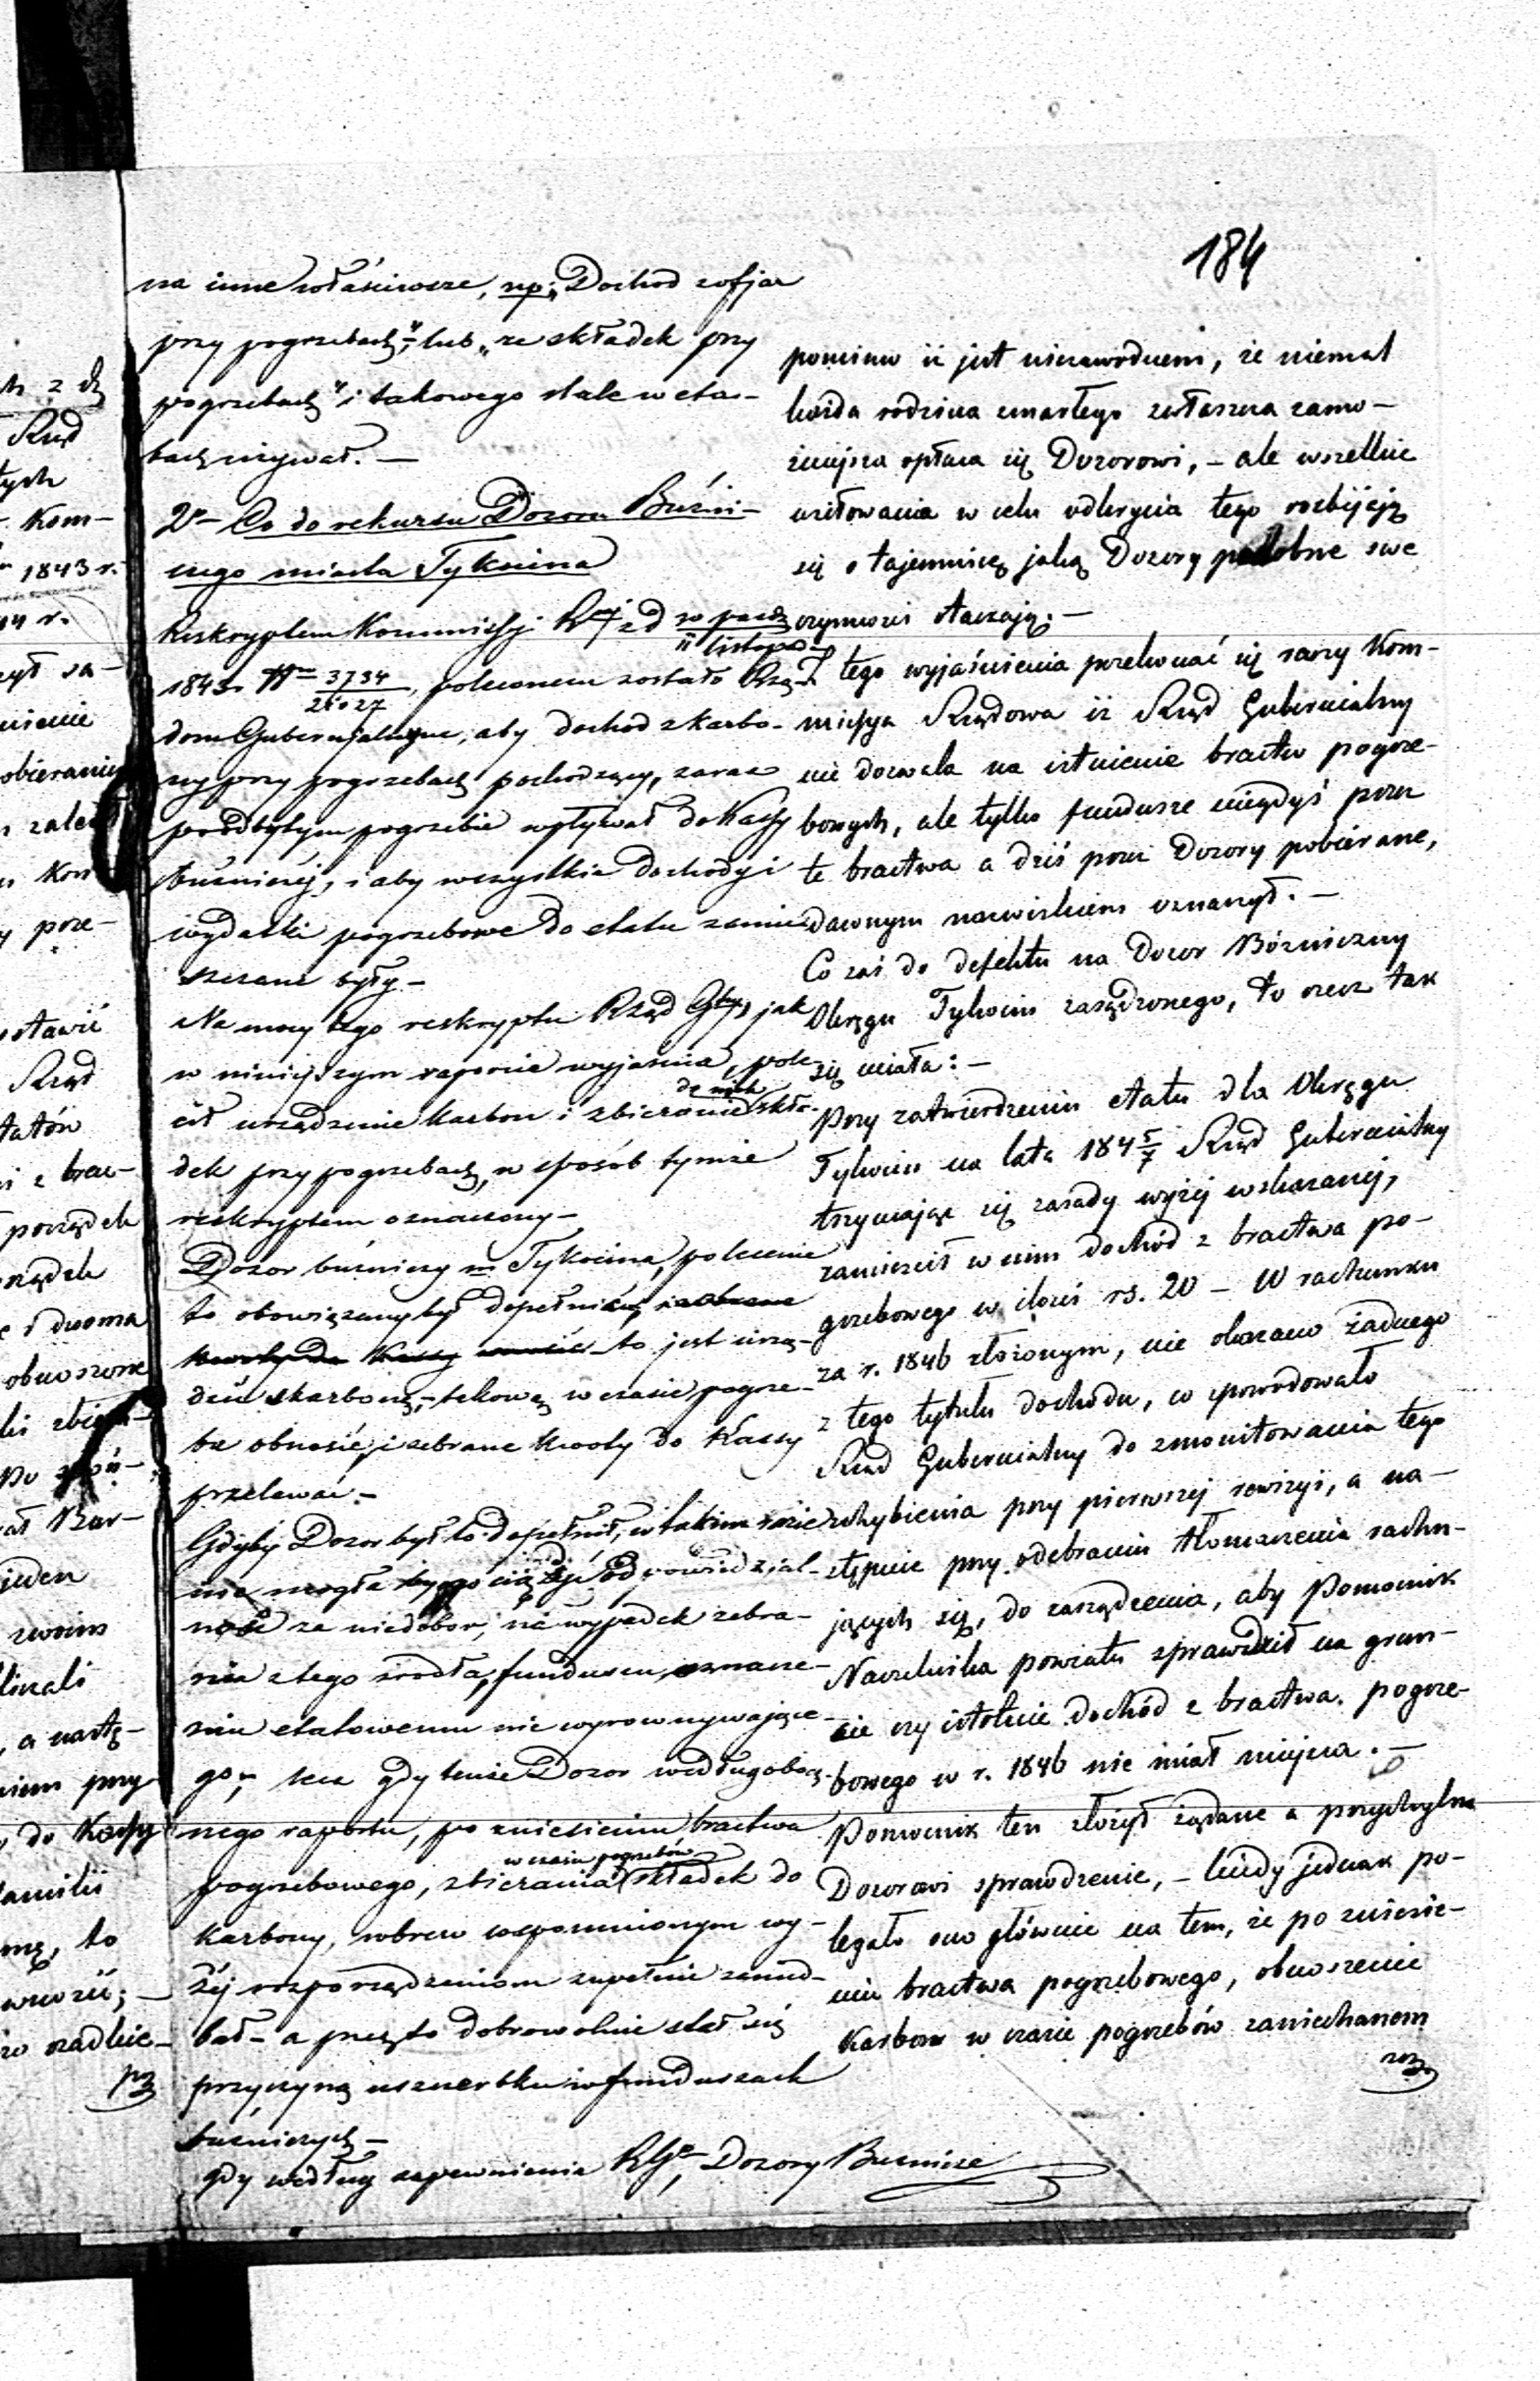 184
na inne właściwsze, np: „Dochod z ofjar
przy pogrzebach", lub „ze składek przy
pogrzebach" i takowego stale w eta-
tach używał. —
2o Co do rekursu Dozoru Buźni-
cznego miasta Tykocina
Reskryptem Kommissyi Rząj z d 30 paźdz
11 listopada
1843 r No 3734
21027, polecone zostało Rzą-
dom Gubernjalnym, aby dochod z karbo-
ny przy pogrzebach pochodzący, zaraz
po odbytym pogrzebie wpływał do Kassy
buźniczéj, i aby wszystkie dochody i
wydatki pogrzebowe do etatu zamie-
szczane były —
Na mocy tego reskryptu Rząd Gbny, jak
w niniejszym raporcie wyjaśnia, pole-
cił urządzenie karbon i zbieranie do nich skła-
dek przy pogrzebach, w sposób tymże
reskryptem oznaczony —
Dozor buźniczy m Tykocina, polecenie
to obowiązany był dopełnić, i zebrane
kwoty do Kassy wnosić to jest urzą-
dzić skarbonę, — takową w czasie pogrze-
bu obnosić, i zebrane kwoty do Kassy
przelewać. —
Gdyby Dozor był to dopełnił, w takim razie
nie mogła by go ciążyć odpowiedzial-
ność za niedobor, na wypadek zebra-
nia z tego źrodła, funduszu, oznacze-
niu etatowemu nie wyrownywające-
go; lecz gdy tenże Dozor według obec-
nego raportu, po zniesieniu bractwa
pogrzebowego, zbierania w czasie pogrzebów składek do
karbony, wbrew wspomnionym wy-
żéj rozporządzeniom zupełnie zanied-
bał — a przez to dobrowolnie stał się
przyczyną uszczerbku w funduszach
buźniczych —
gdy według zapewnienia RGo, Dozory Buźnicze
pomimo iż jest niezawodnem, że niemal
każda rodzina zmarłego zwłaszcza zamo-
żniejsza opłaca się Dozorowi, — ale wszelkie
usiłowania w celu odkrycia tego rozbijają
się o tajemnicę jaką Dozory podobne swe
czynności otaczają. —
Z tego wyjaśnienia przekonać się raczy Kom-
missya Rządowa iż Rząd Gubernialny
nie dozwala na istnienie bractw pogrze-
bowych, ale tylko fundusze niegdyś przez
te bractwa a dziś przez Dozory pobierane,
dawnym nazwiskiem oznaczył. —
Co zaś do defektu na Dozor Bóżniczny
Okręgu Tykocin zarządzonego, to rzecz tak
się miała: —
Przy zatwierdzeniu etatu dla Okręgu
Tykocin na lata 184 5/7 Rząd Gubernialny
trzymając się zasady wyżej wskazanej,
zamieścił w nim dochód z bractwa po-
grzebowego w ilości rs. 20 — W rachunku
za r. 1846 złożonym, nie okazano żadnego
z tego tytułu dochodu, co spowodowało
Rząd Gubernialny do zmonitowania tego
uchybienia przy pierwszej rewizyi, a na-
stępnie przy odebraniu tłomaczenia rachu-
jących się, do zarządzenia, aby Pomocnik
Naczelnika powiatu sprawdził na grun-
cie czy istotnie dochód z bractwa pogrze-
bowego w r. 1846 nie miał miejsca. —
Pomocnik ten złożył żądane a przychylne
Dozorowi sprawdzenie, — kiedy jednak po-
legało ono głównie na tem, że po zniesie-
niu bractwa pogrzebowego, obnoszenie
karbon w czasie pogrzebów zaniechanem